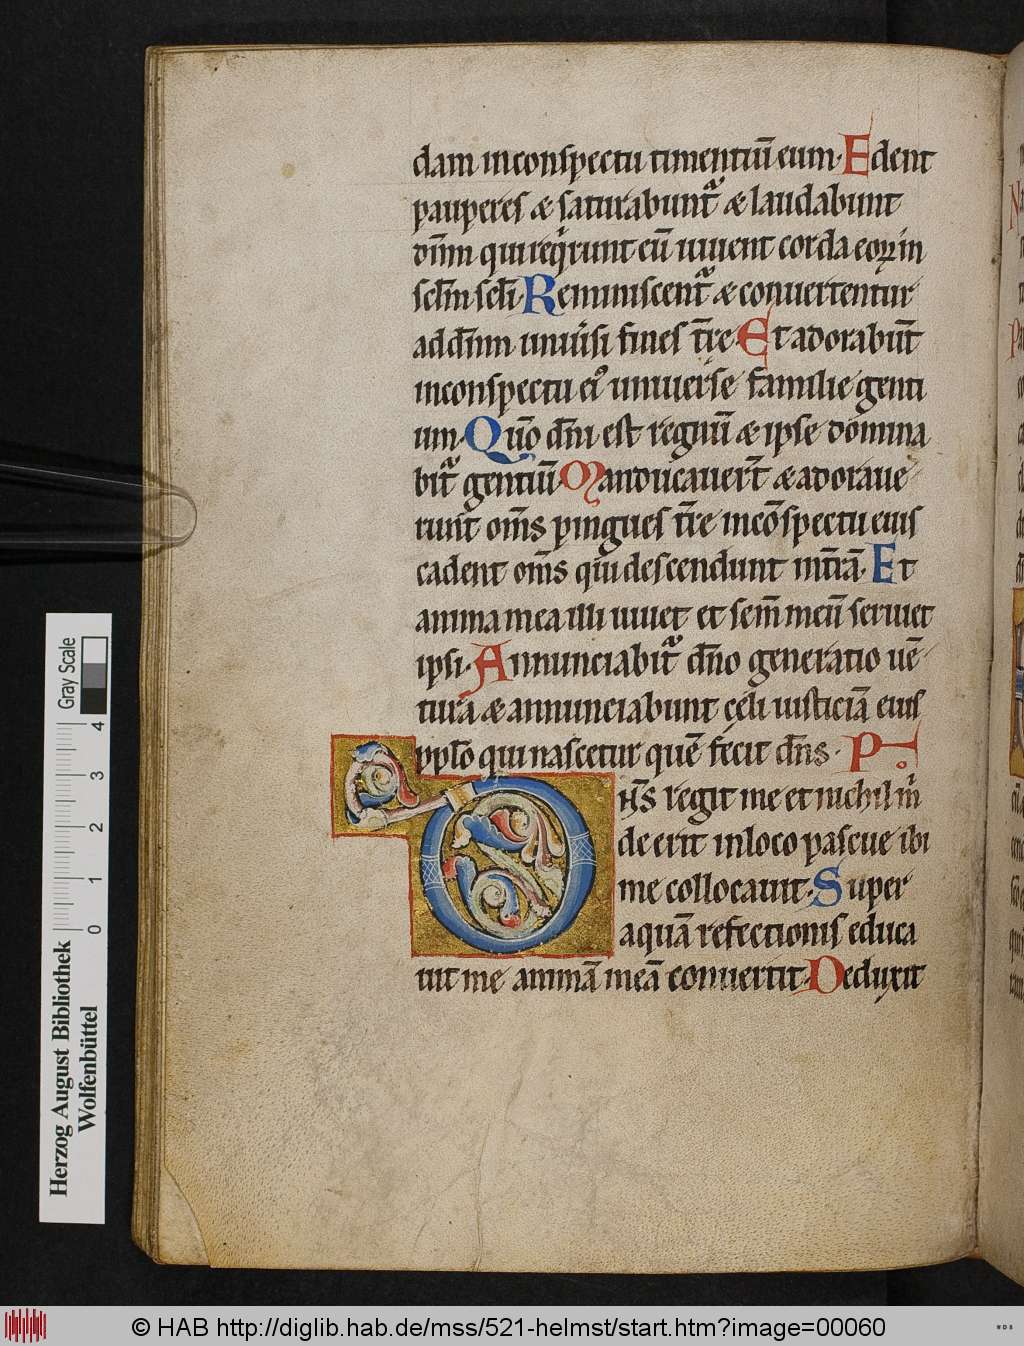 dam in conspectu timentiū eum· Edent
pauperes & saturabunt᷑ & laudabunt
dn̄m qui reqͥrunt eū uiuent corda eoꝝ in
sc̄lm sc̄li· Reminiscent᷑ & conuertentur
ad dn̄m uniu͛si fines tr̄re· Et adorabūt
in conspectu eiꝰ uniuerse familie genti
um· Qm̄o dn̄i est regnū & ipse domina
bit᷑ gentiū· Manducauer̄t & adoraue
runt om̄s pingues tr̄re in cōspectu eius
cadent om̄s qui descendunt in tr̄ā· Et
anima mea illi uiuet et sem̄ meū seruiet
ipsi· Annunciabit᷑ dn̄o generatio uē
tura & annunciabunt celi iusticiā eius
ppl̄o qui nascetur quē fecit dn̄s· P
DN̄S regit me et nichil m͛
de erit in loco pascue ibi
me collocauit· Super
aquā refectionis educa
uit me animā meā conuertit· Deduxit
Gray Scale
4
3
2
1
0
Herzog August Bibliothek
Wolfenbüttel
© HAB http://diglib.hab.de/mss/521-helmst/start.htm?image=00060